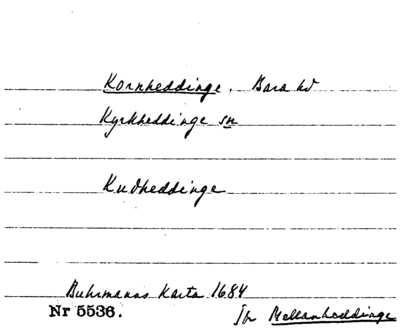 Kornheddinge. Bara hd
Kyrkheddinge sn
Kndheddinge
Buhrmanns Karta 1684
Nr 5536. Jfr Mellanheddinge